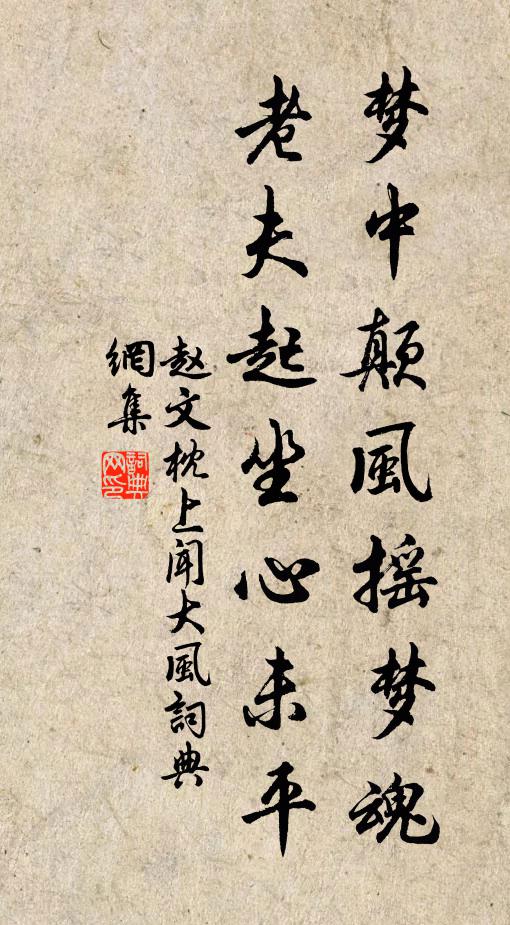 梦中颠風摇梦魂
老夫起坐心未平
赵文枕上闻大風詞典
網集
詞典
网印